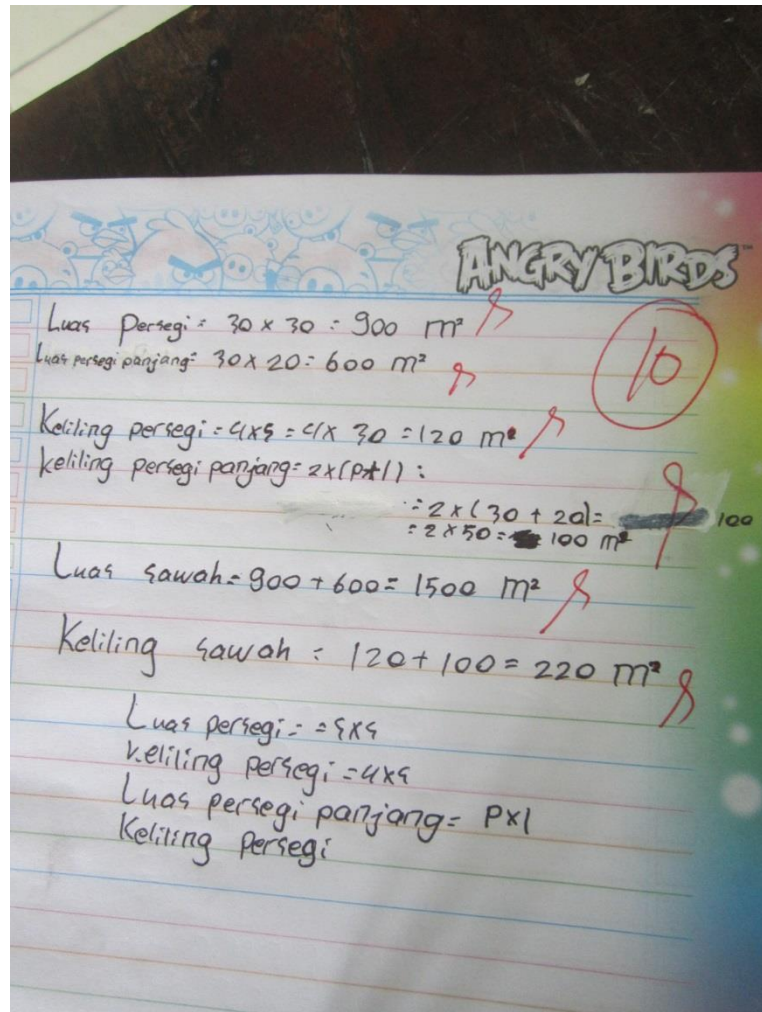 ANGRY BIRDS™
Luas Persegi = 30 x 30 = 900 m²
10
Luas persegi panjang = 30 x 20 = 600 m²
Keliling persegi = 4xs = 4x 30 = 120 m
keliling persegi panjang = 2x(p+l) :
= 2 x (30 + 20) = 100
= 2 x 50 = 100 m²
Luas sawah = 900 + 600 = 1500 m²
Keliling sawah = 120 + 100 = 220 m²
Luas persegi = = sxs
Keliling persegi = 4xs
Luas persegi panjang = Pxl
Keliling persegi